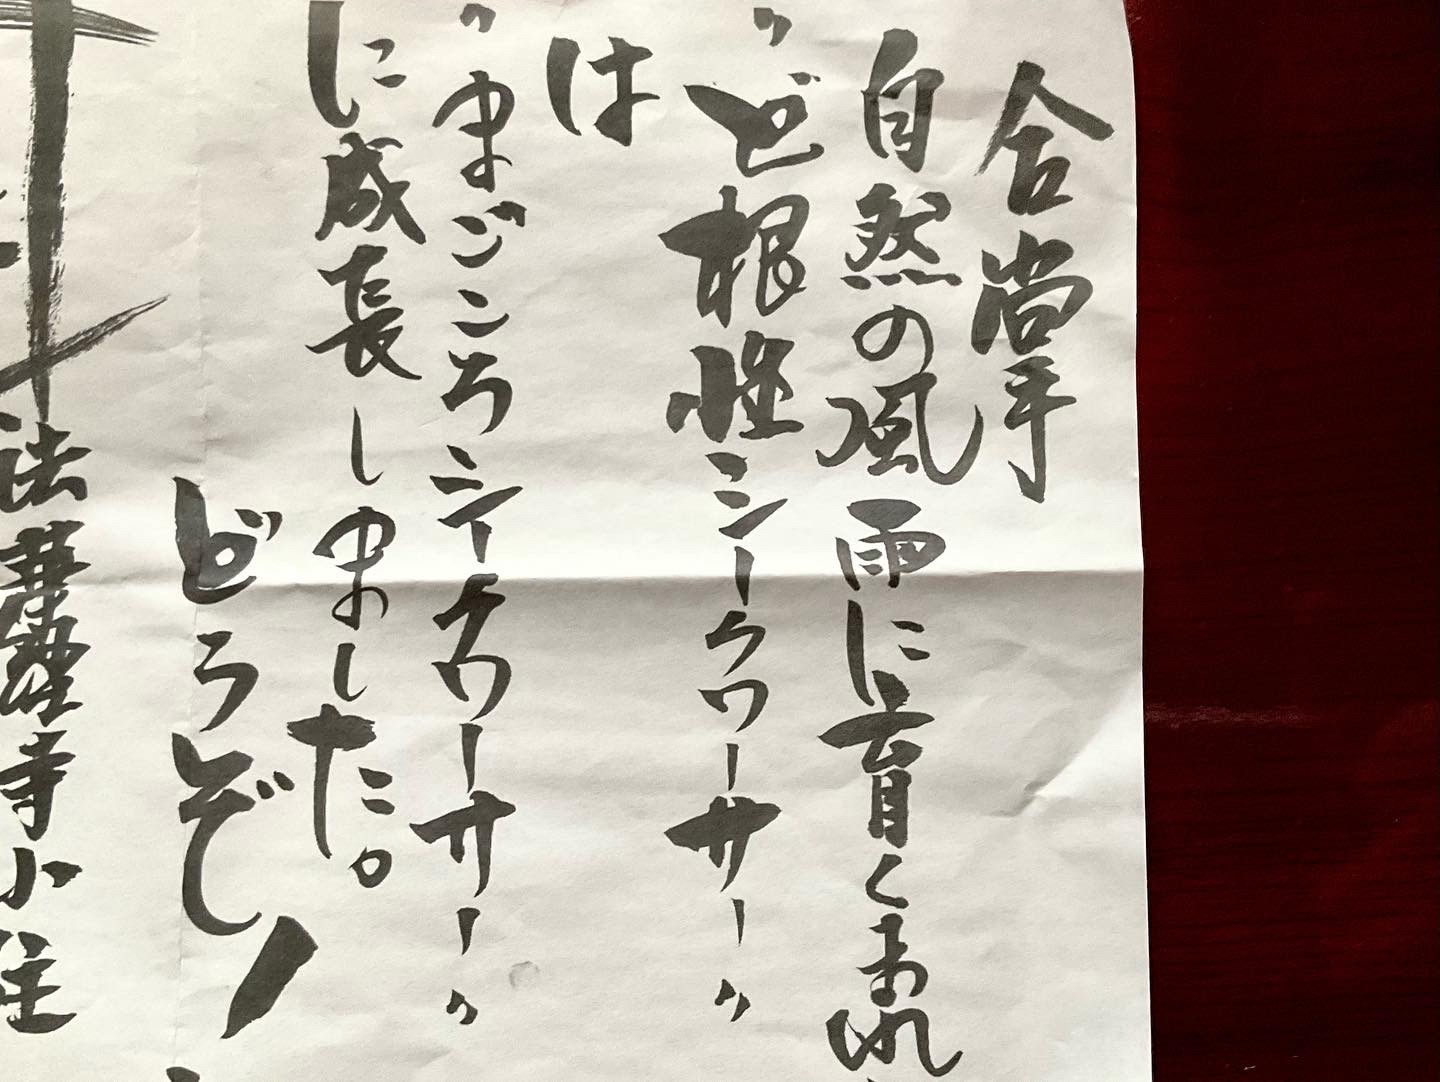 合掌
自然の風雨に育くまれ
"ど根性シークワーサー"
は
"まごころシイクワーサー"
に成長しました。
どうぞ!
法華経寺小住